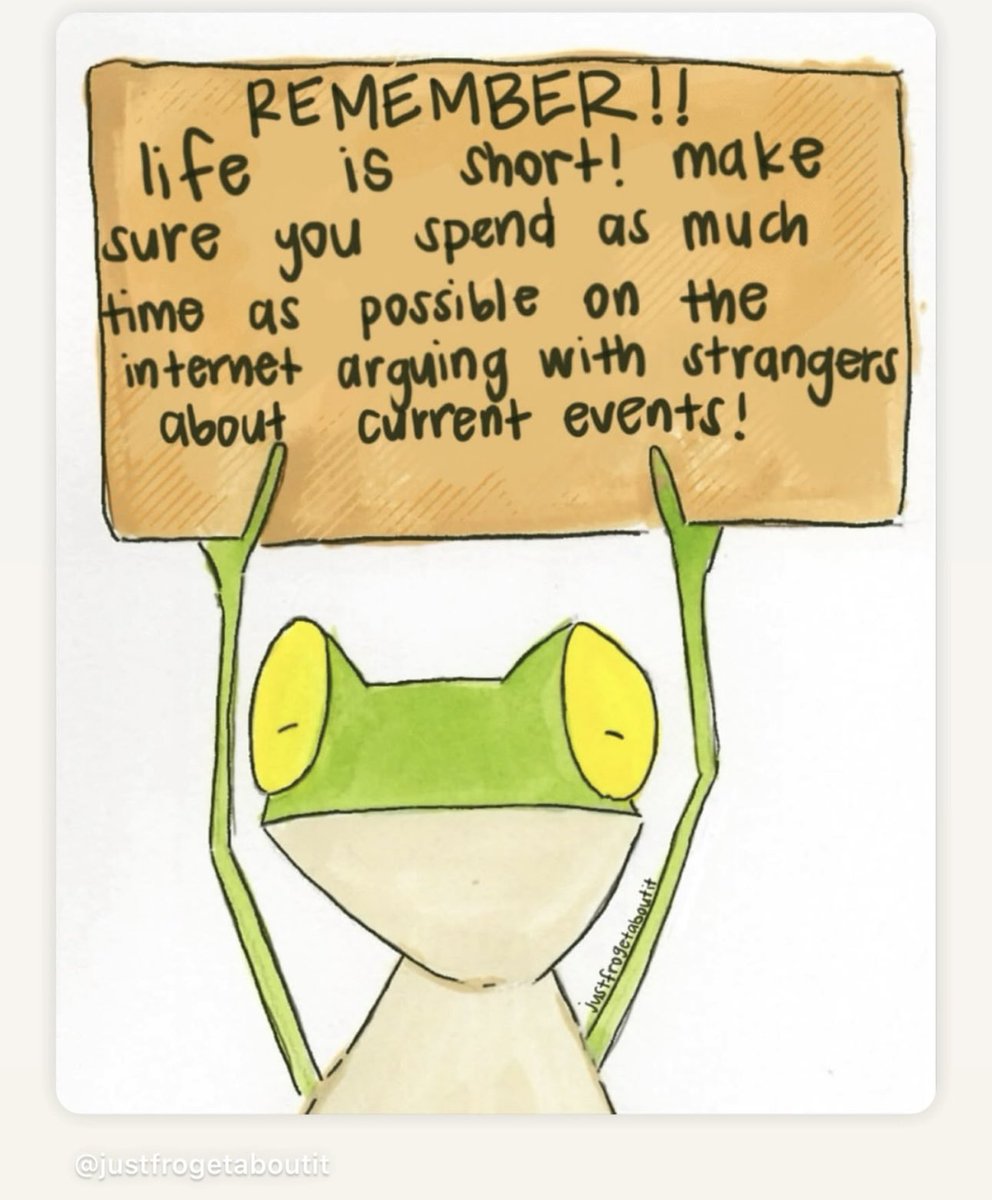 REMEMBER!!
life is short! make
sure you spend as much
time as possible on the
internet arguing with strangers
about current events!
justfrogetaboutit
@justfrogetaboutit